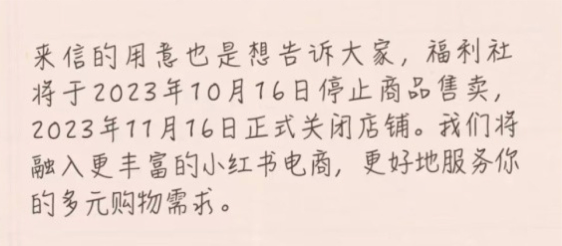 来信的用意也是想告诉大家，福利社
将于2023年10月16日停止商品售卖，
2023年11月16日正式关闭店铺。我们将
融入更丰富的小红书电商，更好地服务你
的多元购物需求。